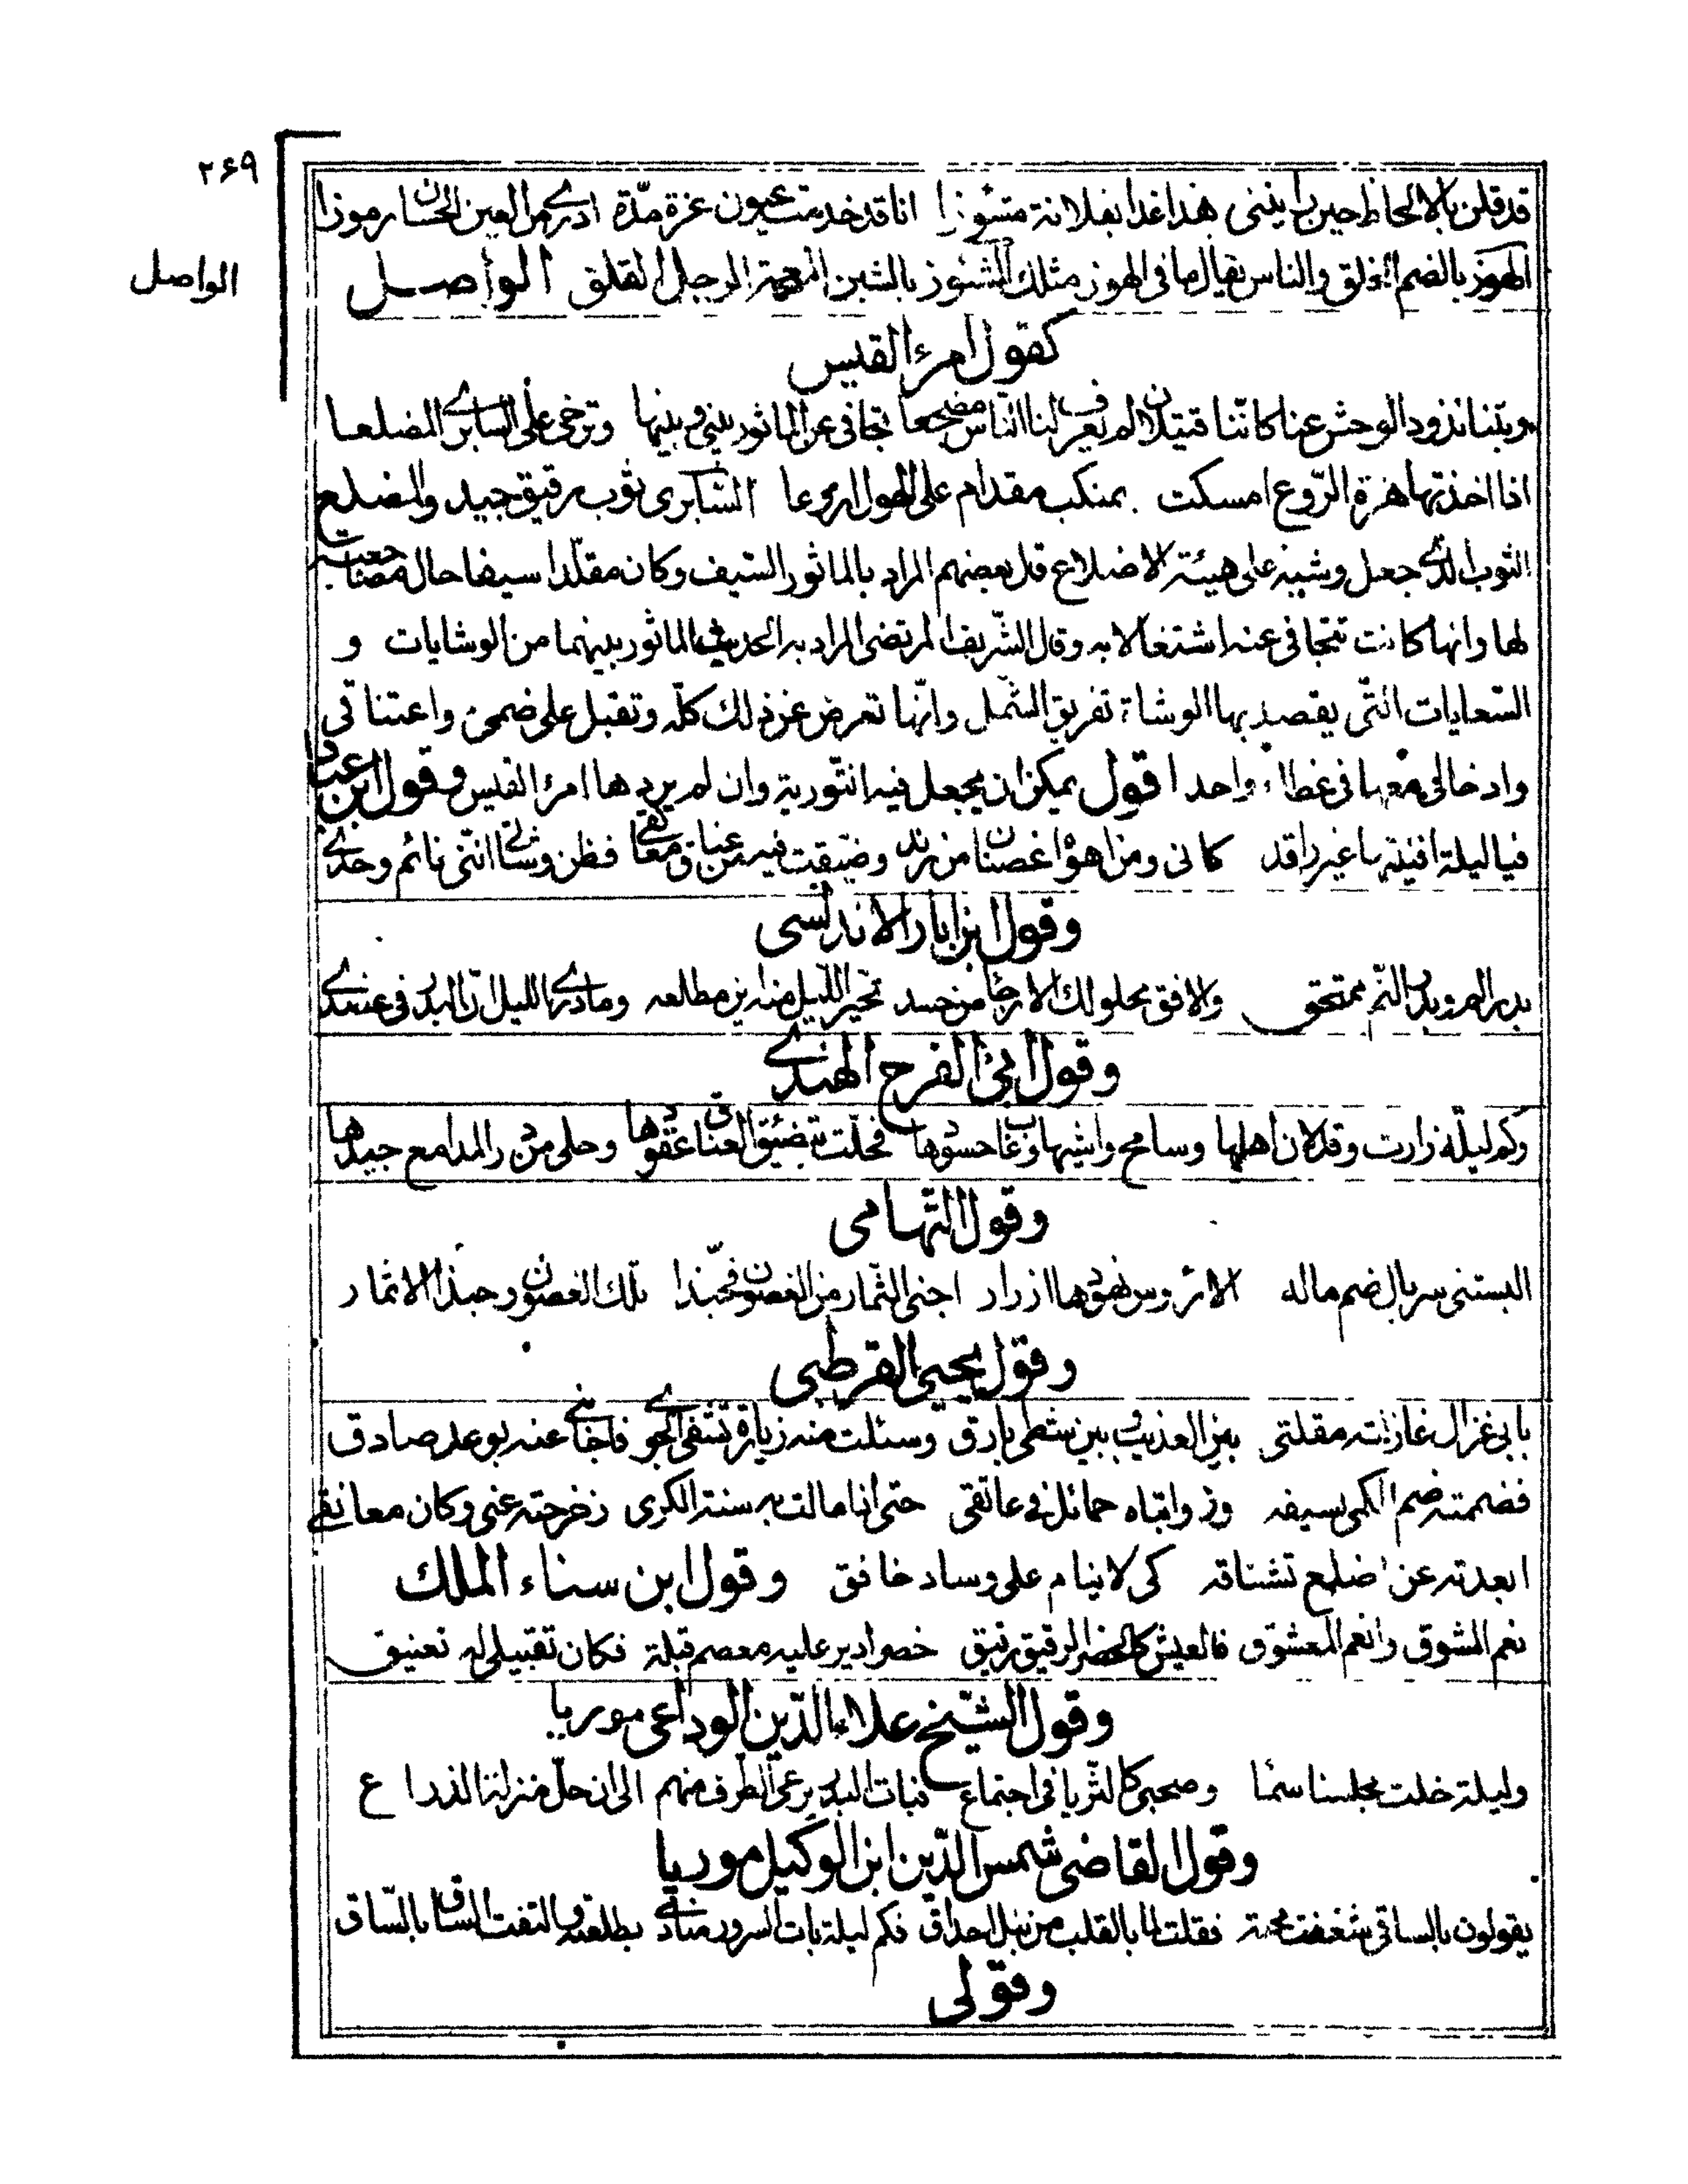 ٢۶٩
قد قلن بالالحاظ حين راينني هذا غدا بفلانة متشوزا انا قد خدمت عيون عزة مدّة ادري من العين الحسان رموزا
الواصل
الهوز بالضم الخلق والناس يقال ما في الهوز مثلك الشئوز بالشين المعجمة الرجل القلق الواصل
كقول امرء القيس
وبتنا نذود الوحش عنا كانّنا قتيلان لم يعرف لنا النّاس مضجعا تجافي عن الماثور بيني وبينها وترخي علي السابري المضلعا
اذا اخذتها هزة الرّوع امسكت بمنكب مقدام على الهول اروعا السّابري ثوب رقيق جيد والمضلع
الثوب الّذي جعل وشيه على هيئة الاضلاع قال بعضهم المراد بالماثور السّيف وكان مقلّدا سيفا حال مضاجعته
لها وانها كانت تتجافى عنه اشتغالا به وقال الشّريف المرتضى المراد به الحديث الماثور بينهما من الوشايات و
السّعايات الّتي يقصد بها الوشاة تفريق الشّمل وانّها تعرض عن ذلك كلّه وتقبل على ضمّي واعتناقي
وادخالي معها في غطاء واحد اقول يمكن ان يجعل فيه التّورية وان لم يردها امرء القيس وقول ابن عباد
فيا ليلة افنيتها غير راقد كاني ومن اهوا غصنان من رند وضيقت فيه من عناقي معانقي فظن وشاتي انني نائم وحدي
وقول ابن ابار الاندلسي
بدر الم وبدر التّم ممتحق والافق محلولك الارجاء من حسد تحير اللّيل منه اين مطلعه وما دري الليل انّ البدر في عضدي
وقول ابي الفرج الهندي
وكم ليلة زارت وقد لان اهلها وسامح واشيها وغاب حسودها فحلّت بتضئيق العناق عقودها وحلى من در المدامع جيدها
وقول التّهامي
البستني سربال ضم ماله الا رؤس نهودها ازرار اجني الثّمار من الغصون فحبّذا تلك الغصون وحبذا الاثمار
وقول يحيى القرطبي
بابي غزال غازلته مقلتي بين العذيب وبين شطي بارق وسئلت منه زيارة تشفي الجوي فاجابني عنه بوعد صادق
فضممته ضم الكمي لسيفه وذوابتاه حمائل في عاتقي حتى اذا مالت به سنة الكرى زحزحته عني وكان معانقي
ابعدته عن اضلع تشتاقه كي لا ينام على وساد خافق وقول ابن سناء الملك
نعم المشوق وانعم المعشوق فالعيش كالخصر الرقيق رقيق خصر ادير عليه معصم قبلة فكان تقبيلي له تعنيق
وقول الشّيخ علاء الدّين الوداعي موريا
وليلة خلت مجلسنا سما وصحبي كالثّريا في اجتماع فبات البدر يرعى الطرف منهم الى ان حلّ منزلة الذراع
وقول القاضي شمس الدّين ابن الوكيل موريا
يقولون بالساقي شغفت محبة فقلت لما بالقلب من نبل احداق فكم ليلة بات السرور منادمي بطلعته والتفت السّاق بالسّاق
وقولي